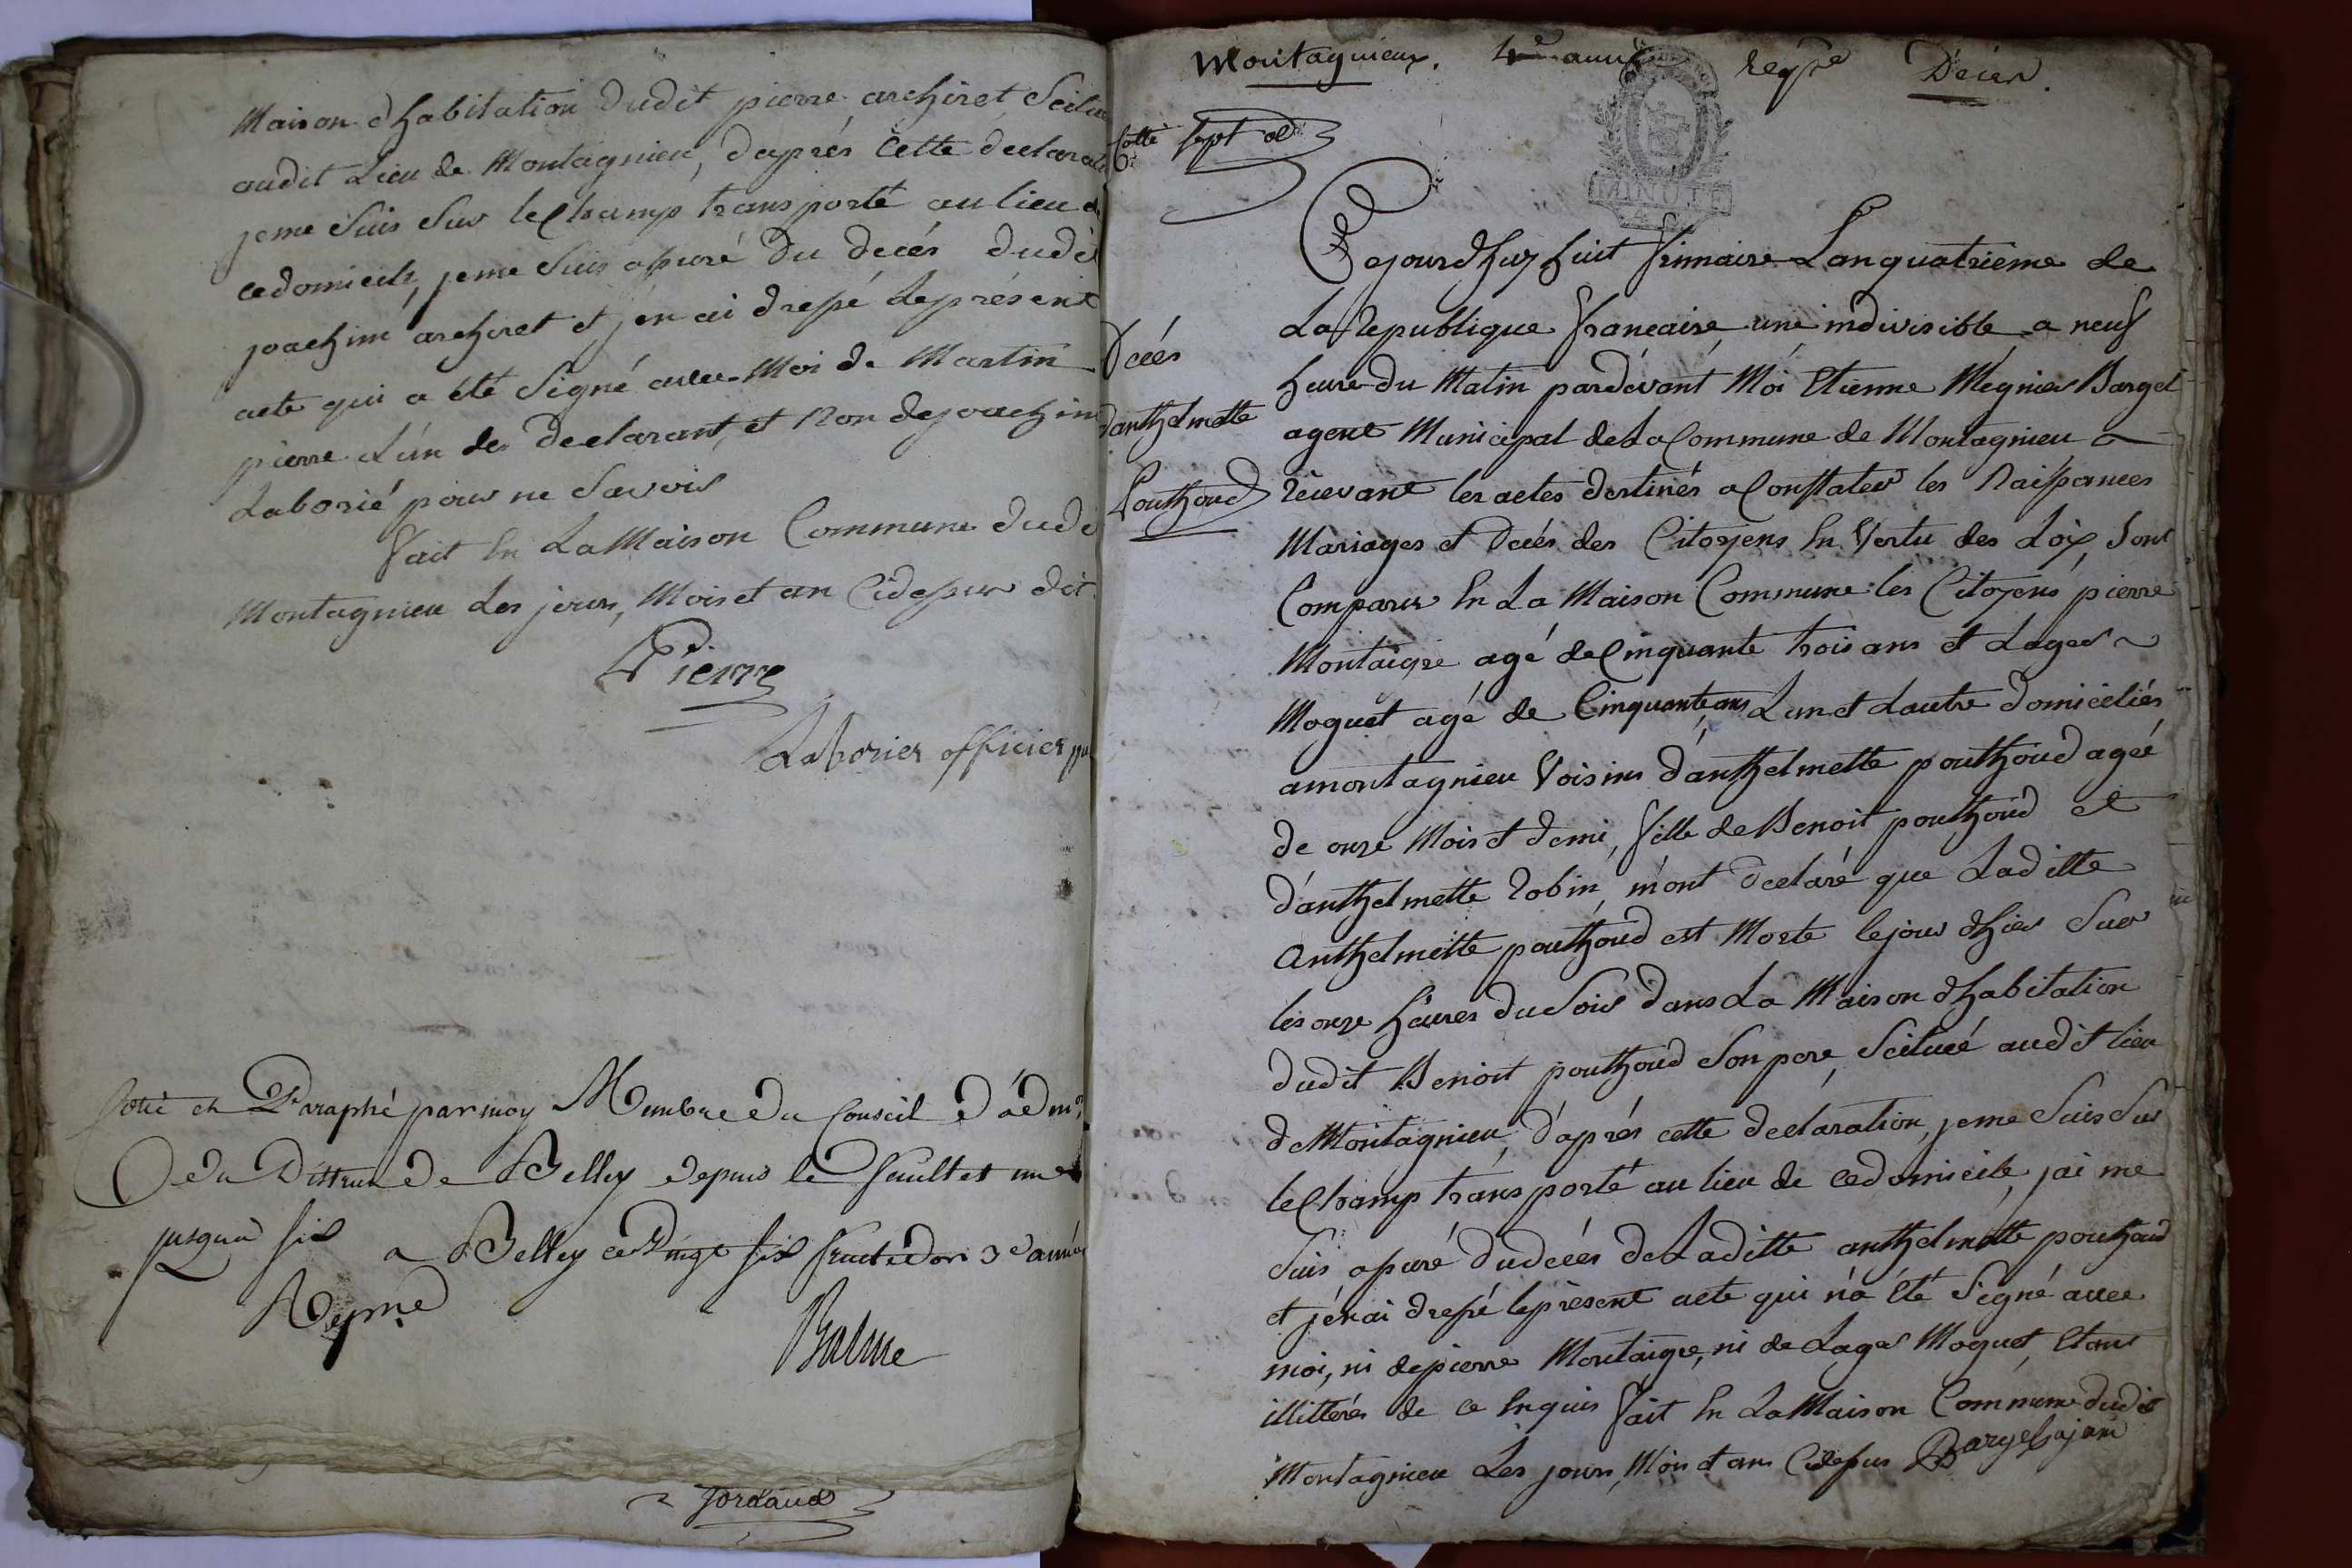 Maison d'habitation dudit pierre archiret Scitu
audit Lieu de Montagnieu, d'après Cette déclarati
jeme Suis Sur leChamp transporté au lieu de
cedomicile, jeme Suis assuré du decés dudit
joachim archiret et j'en ai dressé leprésent
acte qui a été Signé avec Moi de Martin
pierre L'un des declarant, et Non dejoachim
Laborié pour ne Savoir
Fait En La Maison Commune dudi
Montagnieu Les jour, Mois et an Cidessus dit
Pierre
Laborier officier pu
Cotté et Paraphé par moy Membre du Conseil d'adm.on
du District de Belley depuis le feuillet un
jusqua six a Belley ce Vingt six fructidor 3e année
Balme
Jordaud
Montagnieux. 4e année regtre Décès.
Cotte sept
MINUTE
Cejourdhuy huit frimaire Lanquatrième de
La republique francaise une indivisible a neuf
heure du Matin pardevant Moi Etienne Mégnier Barget
agent Municipal deLaCommune de Montagnieu
Décès
d'anthelmette
Pouthoud
récevant les actes destinés aConstater les Naissances
Mariages et decés des Citoyens En Vertu des Loix, Sont
Comparus En La Maison Commune les Citoyens pierre
Montaigre agé deCinquante trois ans et Lager
Moguet agé de Cinquante ans Lun et Lautre domiciliés
amontagnieu Voisins d'anthelmette pouthoud agée
de onze Mois et demi, fille deBenoit pouthoud et
d'anthelmette robin, m'ont declaré que Laditte
Anthelmette pouthoud est Morte lejour d'hier Sur
les onze heures duSoir dans La Maison d'habitation
dudit Benoit pouthoud Son pere, Scituée audit lieu
deMontagnieu, d'après cette declaration, jeme Suis Sur
leChamp transporté au lieu de cedomicile, jai me
Suis assuré dudecés deLaditte anthelmette pouthoud
et j'en ai dressé leprésent acte qui n'a été Signé avec
moi, ni depierre Montaigre, ni de Lager Moguet, Etant
illittérés de ce Enquis Fait En La Maison Commune dudit
Montagnieu Les jour, Mois et an Cidessus